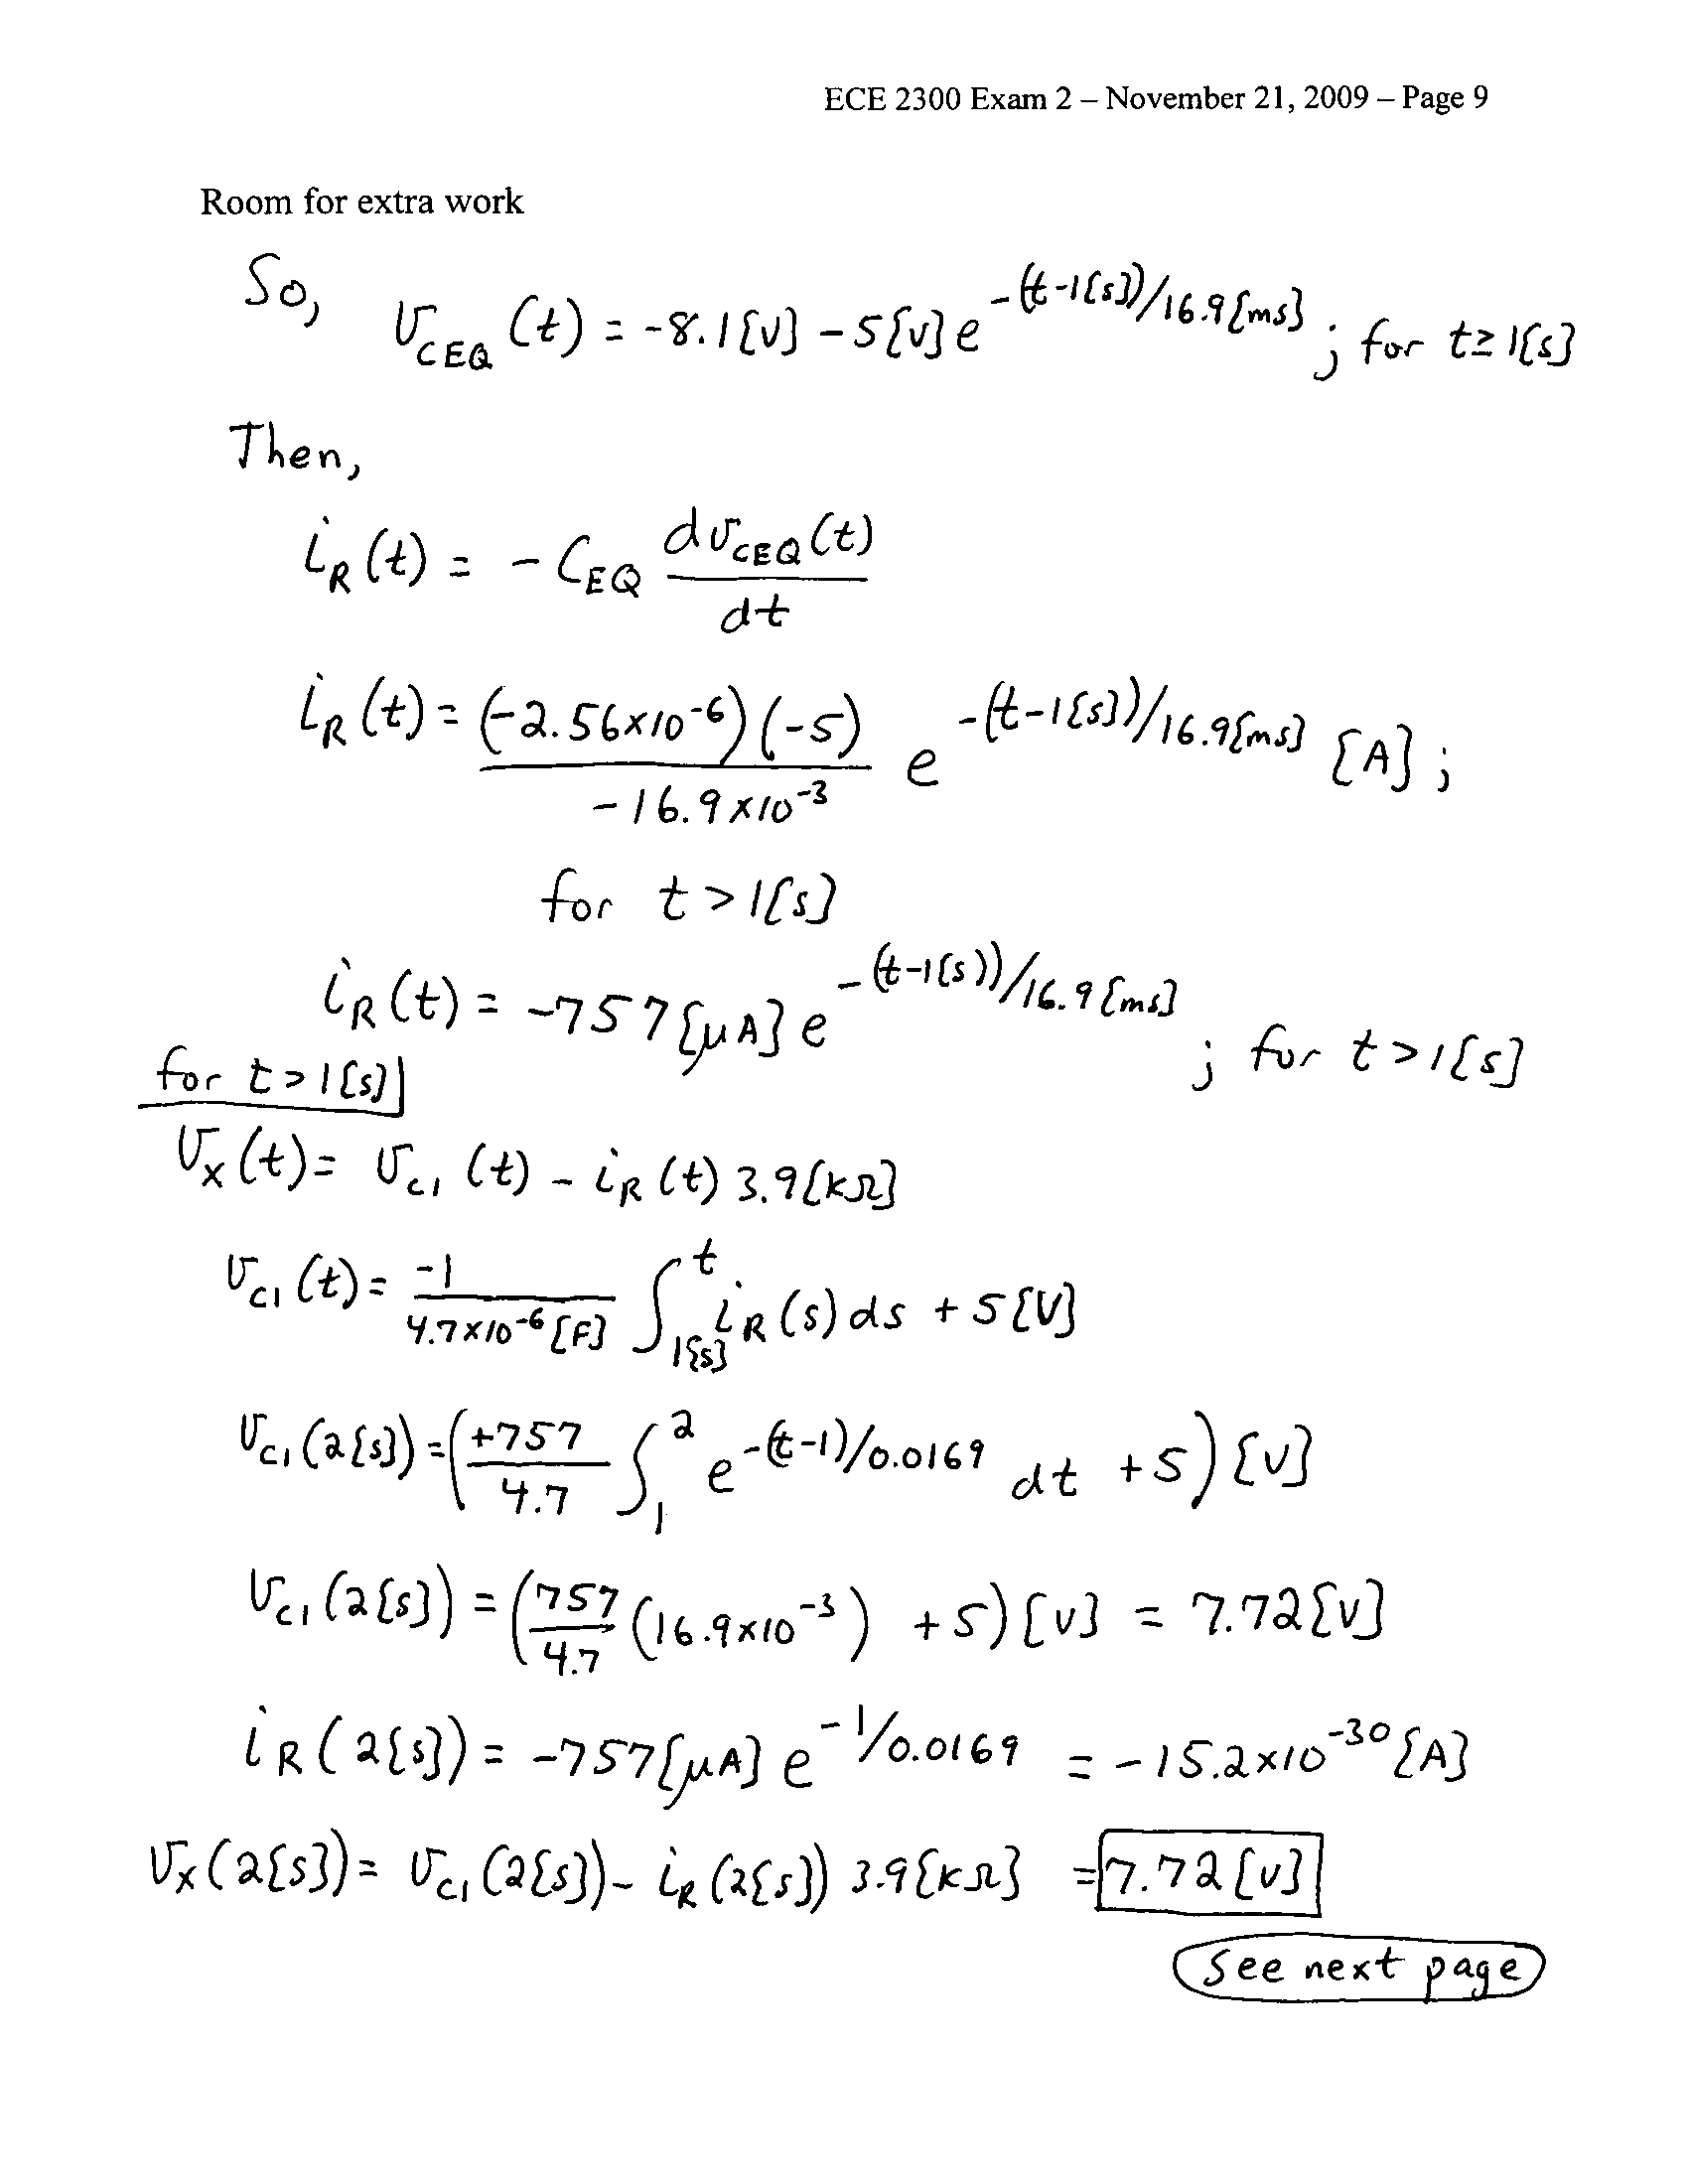 ECE 2300 Exam 2 – November 21, 2009 – Page 9
Room for extra work
So, v_CEQ (t) = -8.1[V] - 5[V] e^-(t-1[s])/16.9[ms] ; for t ≥ 1[s]
Then,
i_R (t) = - C_EQ dv_CEQ (t) / dt
i_R (t) = (-2.56×10^-6)(-5) / -16.9×10^-3 e^-(t-1[s])/16.9[ms] [A] ;
for t > 1[s]
i_R (t) = -757[μA] e^-(t-1[s])/16.9[ms] ; for t > 1[s]
for t > 1[s]
v_x (t) = v_C1 (t) - i_R (t) 3.9[kΩ]
v_C1 (t) = -1 / 4.7×10^-6 [F] ∫_1[s]^t i_R (s) ds + 5[V]
v_C1 (2[s]) = ( +757 / 4.7 ∫_1^2 e^-(t-1)/0.0169 dt + 5 ) [V]
v_C1 (2[s]) = ( 757 / 4.7 (16.9×10^-3) + 5 ) [V] = 7.72[V]
i_R (2[s]) = -757[μA] e^-1/0.0169 = -15.2×10^-30 [A]
v_x (2[s]) = v_C1 (2[s]) - i_R (2[s]) 3.9[kΩ] = 7.72[V]
See next page